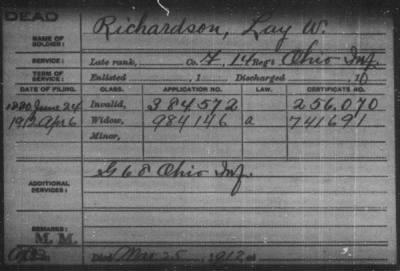 DEAD
NAME OF SOLDIER: Richardson, Lay W.
SERVICE: Late rank, Co. F, 14 Reg't Ohio Inf.
TERM OF SERVICE: Enlisted , 1 Discharged , 10
DATE OF FILING. CLASS. APPLICATION NO. LAW. CERTIFICATE NO.
1880 June 24 Invalid, 384572 256.070
1912 Apr 6 Widow, 984146 a 741691
Minor,
ADDITIONAL SERVICES: G 68 Ohio Inf.
REMARKS:
M. M.
Died Mar 25, 1912, at